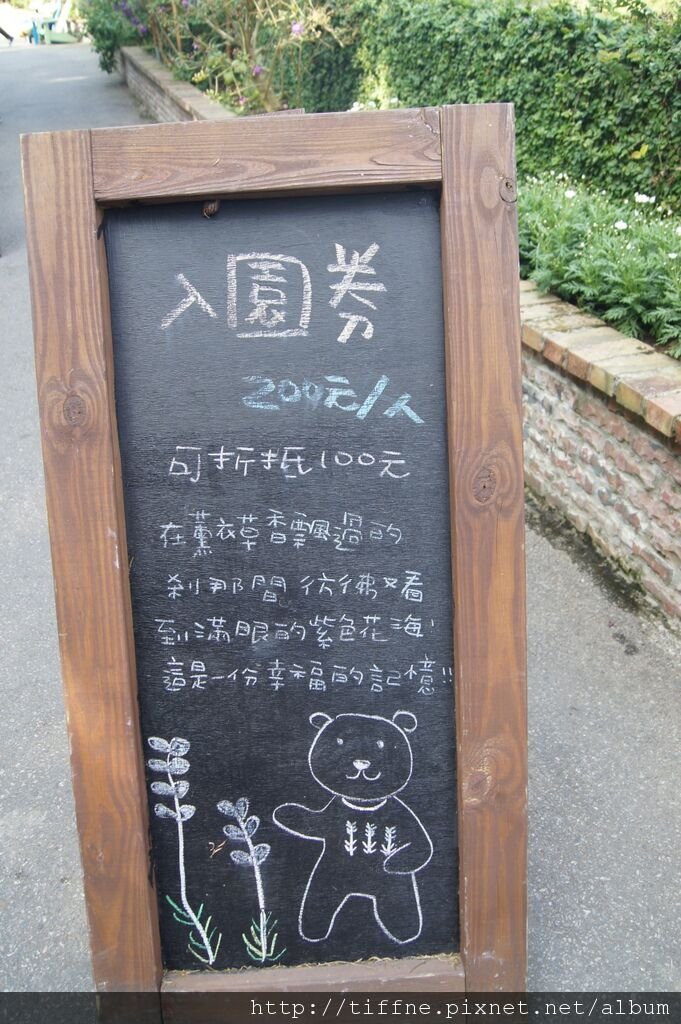 入園券
200元/人
可折抵100元
在薰衣草香飄過的
剎那間彷彿又看
到滿眼的紫色花海,
這是一份幸福的記憶!!
http://tiffne.pixnet.net/album